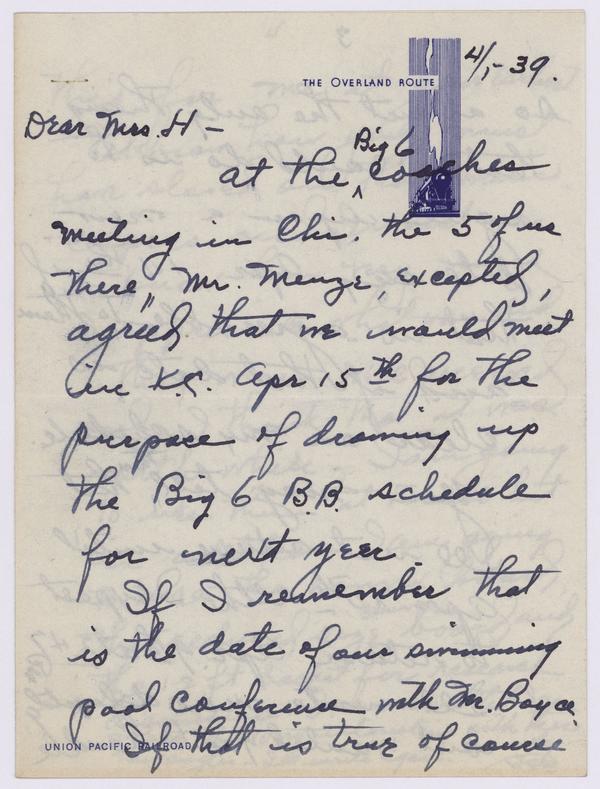 THE OVERLAND ROUTE
4/1-39.
Dear Mrs. H-
Big 6
at the ^ coaches
meeting in Chi. the 5 of us
there, Mr. Menze, excepted,
agreed that we would meet
in K.C. Apr 15th for the
purpose of drawing up
the Big 6 B.B. schedule
for next year.
If I remember that
is the date of our swimming
pool conference with Mr. Boyce.
UNION PACIFIC RAILROAD
If that is true of course